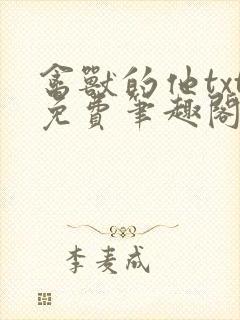 禽獸的他txt
免費筆趣閣
李麦成